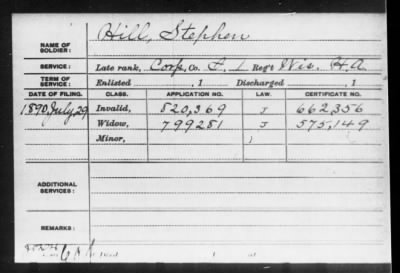 NAME OF SOLDIER: Hill, Stephen
SERVICE: Late rank, Corp, Co. L, 1 Reg't Wis. H.A.
TERM OF SERVICE: Enlisted , 1 Discharged , 1
DATE OF FILING. CLASS. APPLICATION NO. LAW. CERTIFICATE NO.
1890, July, 29 Invalid, 820,369 J 662,356
Widow, 799281 J 575,149
Minor,
ADDITIONAL SERVICES:
REMARKS: